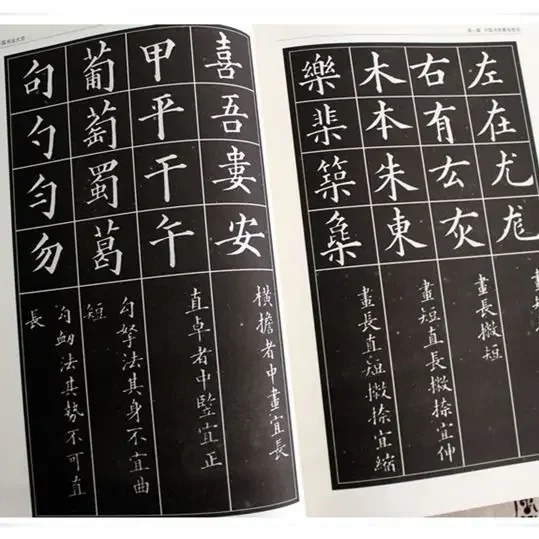 喜吾婁安
橫擔者中畫宜長
甲平干午
直卓者中竪宜正
葡萄蜀葛
勾拏法其身不宜曲
短
句勺匀勿
勾衂法其勢不可直
長
左在尤尨
右有厷灰
畫長撇短
木本朱東
畫短直長撇捺宜伸
樂棐築
畫長直短撇捺宜縮